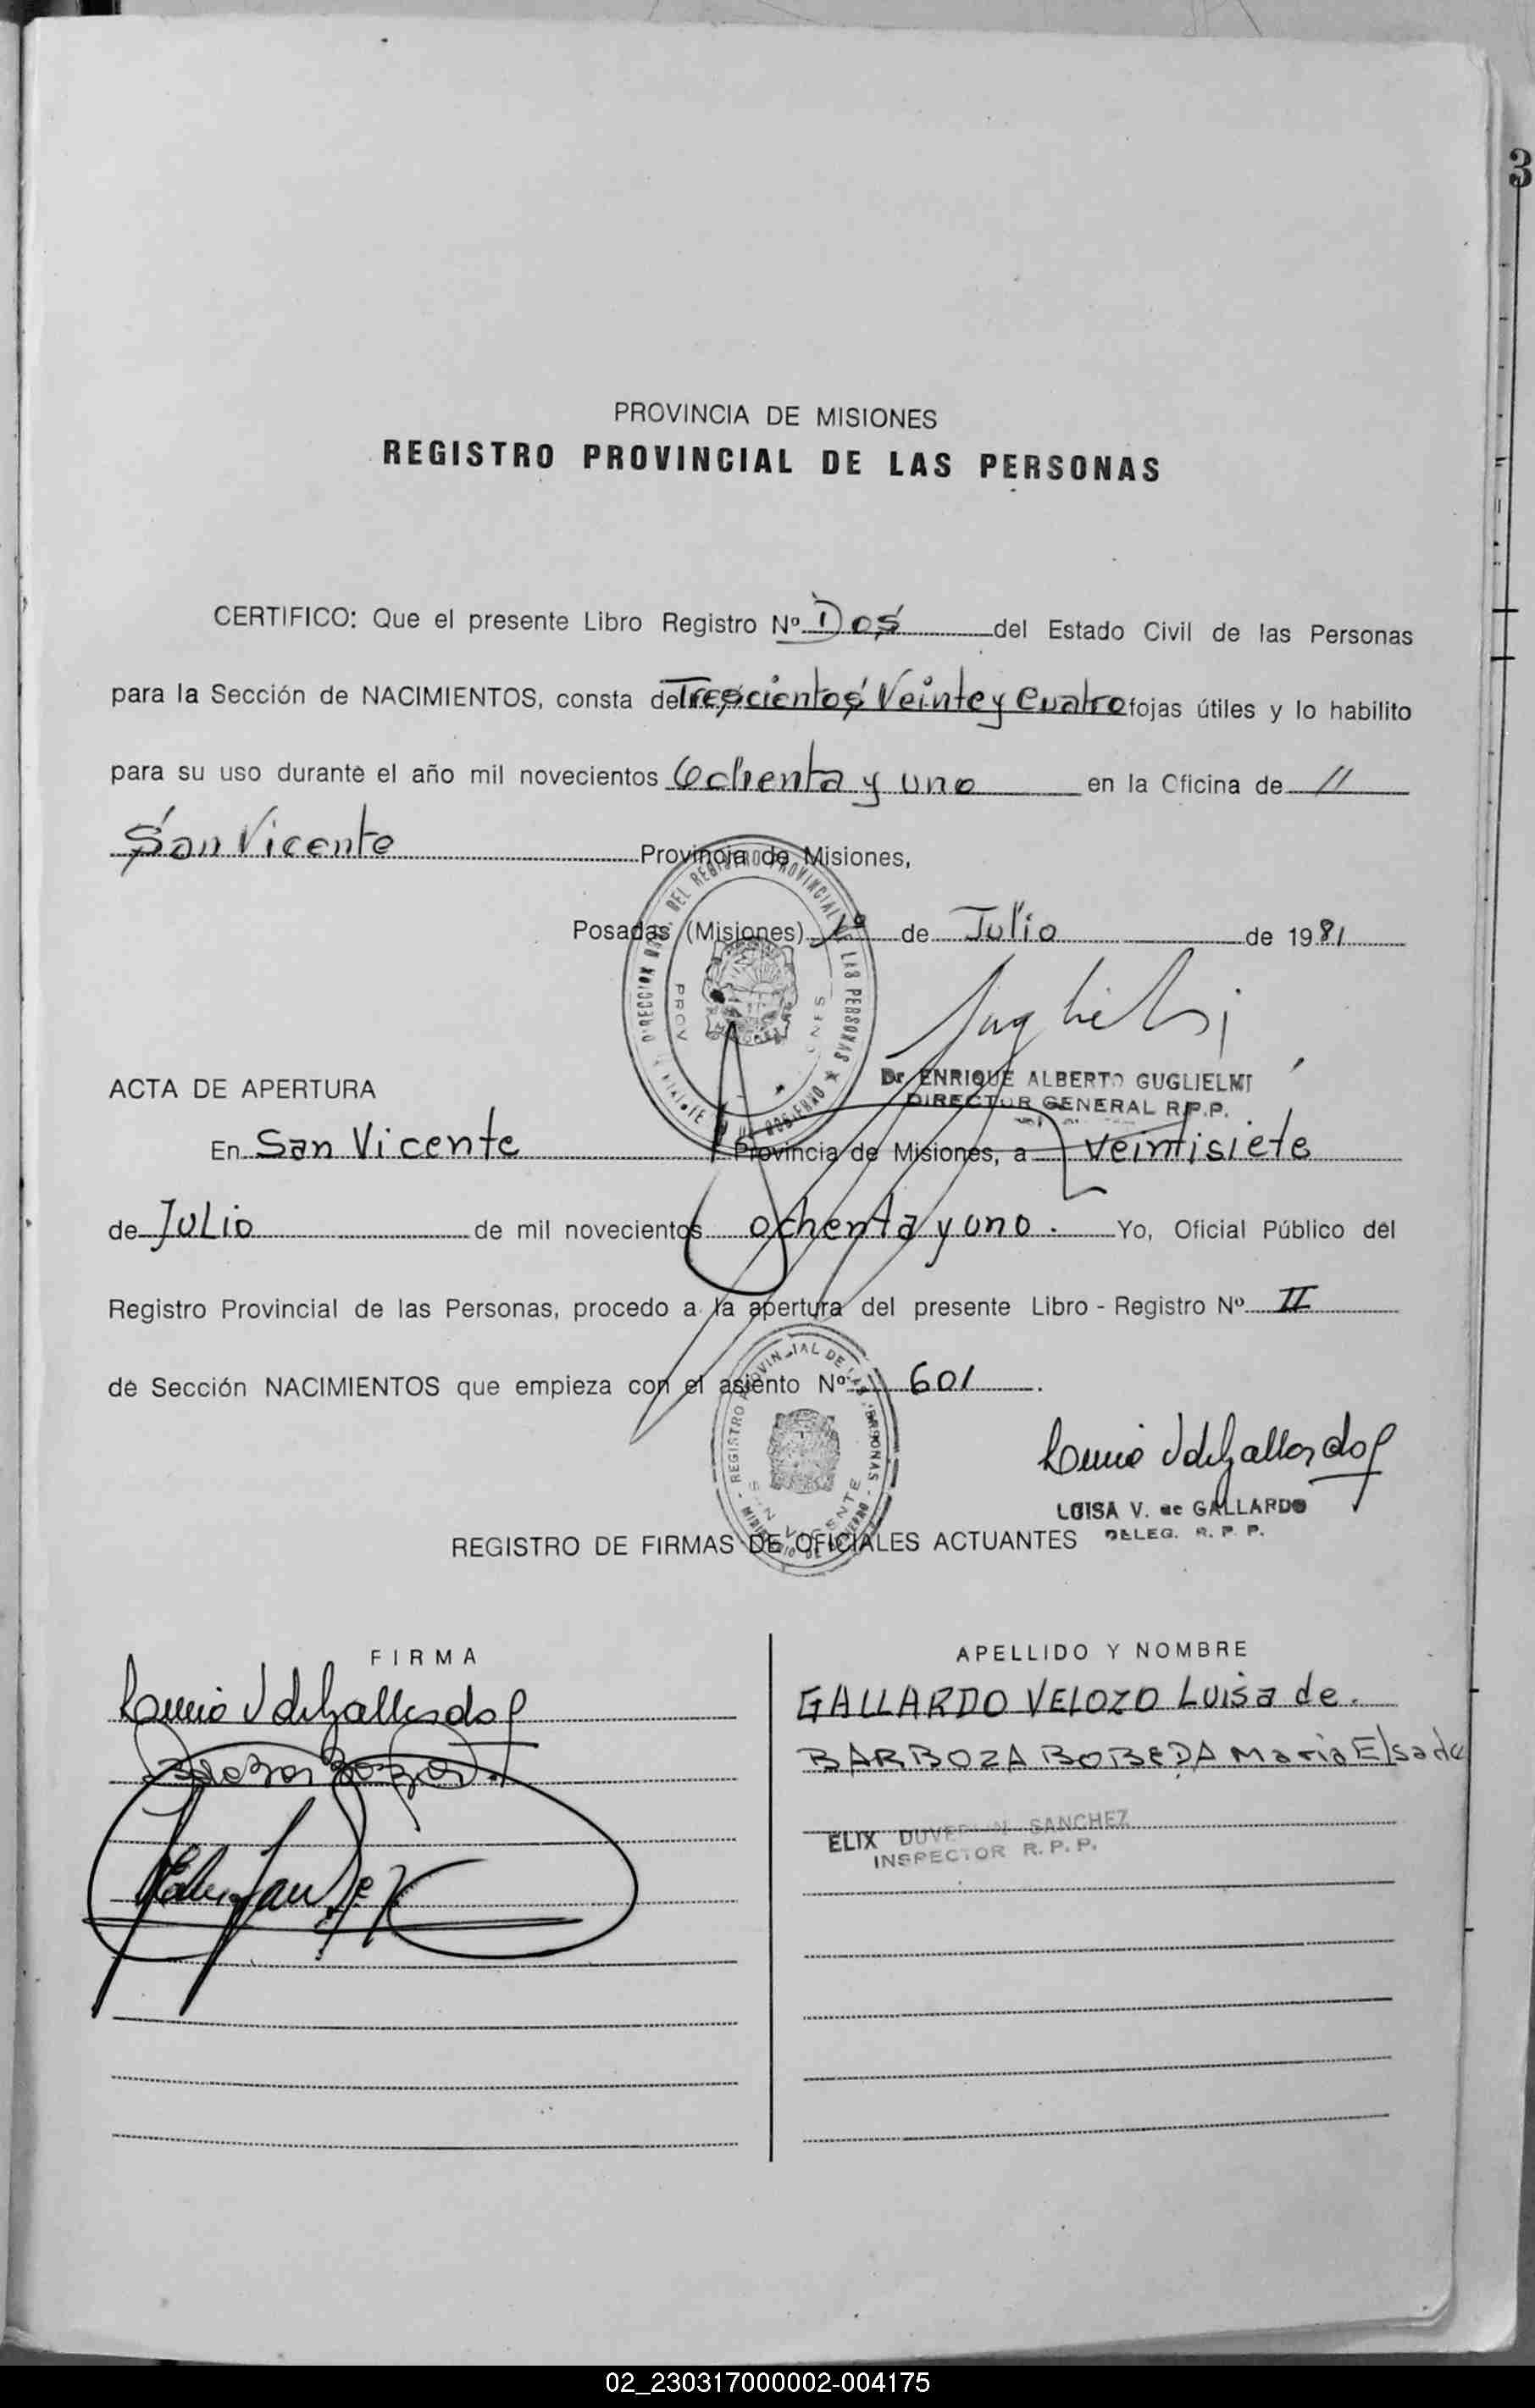 3
PROVINCIA DE MISIONES
REGISTRO PROVINCIAL DE LAS PERSONAS
CERTIFICO: Que el presente Libro Registro Nº Dos del Estado Civil de las Personas
para la Sección de NACIMIENTOS, consta de Trescientos Veinte y Cuatro fojas útiles y lo habilito
para su uso durante el año mil novecientos Ochenta y uno en la Oficina de //
San Vicente Provincia de Misiones,
Posadas (Misiones) 1º de Julio de 1981
Dr. ENRIQUE ALBERTO GUGLIELMI
DIRECTOR GENERAL R.P.P.
ACTA DE APERTURA
En San Vicente Provincia de Misiones, a veintisiete
de Julio de mil novecientos ochenta y uno. Yo, Oficial Público del
Registro Provincial de las Personas, procedo a la apertura del presente Libro - Registro Nº II
de Sección NACIMIENTOS que empieza con el asiento Nº 601.
LUISA V. de GALLARDO
DELEG. R. P. P.
REGISTRO DE FIRMAS DE OFICIALES ACTUANTES
FIRMA
APELLIDO Y NOMBRE
GALLARDO VELOZO Luisa de.
BARBOZA BOBEDA Maria Elsa de
ELIX SANCHEZ
INSPECTOR R. P. P.
02_230317000002-004175